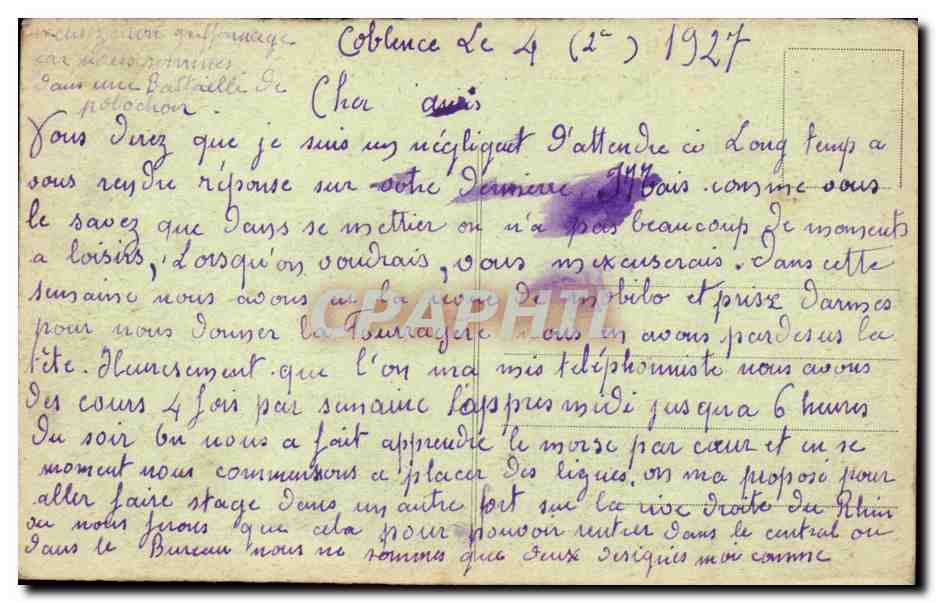 excusez mon griffonnage
car nous sommes
dans une Battaille de
polochon.
Coblence Le 4 (2e) 1927
Cher amis
Vous direz que je suis un négligent D'attendre ci Long temp a
vous rendre réponse sur votre dernière Mais comme vous
le savez que dans se mettier on n'a pas beaucoup de moments
a loisirs, Lorsqu'on voudrais, vous m'excuserais. Dans cette
semaine nous avons eu la revue de mobilo et prise darmes
pour nous donner la Fourragère nous en avons par desus la
tête. Heuresement que l'on ma mis teléphonniste nous avons
des cours 4 fois par semaine l'appres midi jusqua 6 heures
du soir On nous a fait apprendre le morse par cœur et en se
moment nous commensons a placer des lignes, on ma proposé pour
aller faire stage dans un autre fort sur la rive droite du Rhin
ou nous ferons que cela pour pouvoir rentrer dans le central ou
dans le Bureau nous ne sommes que deux designés moi comme
CPAPHIL